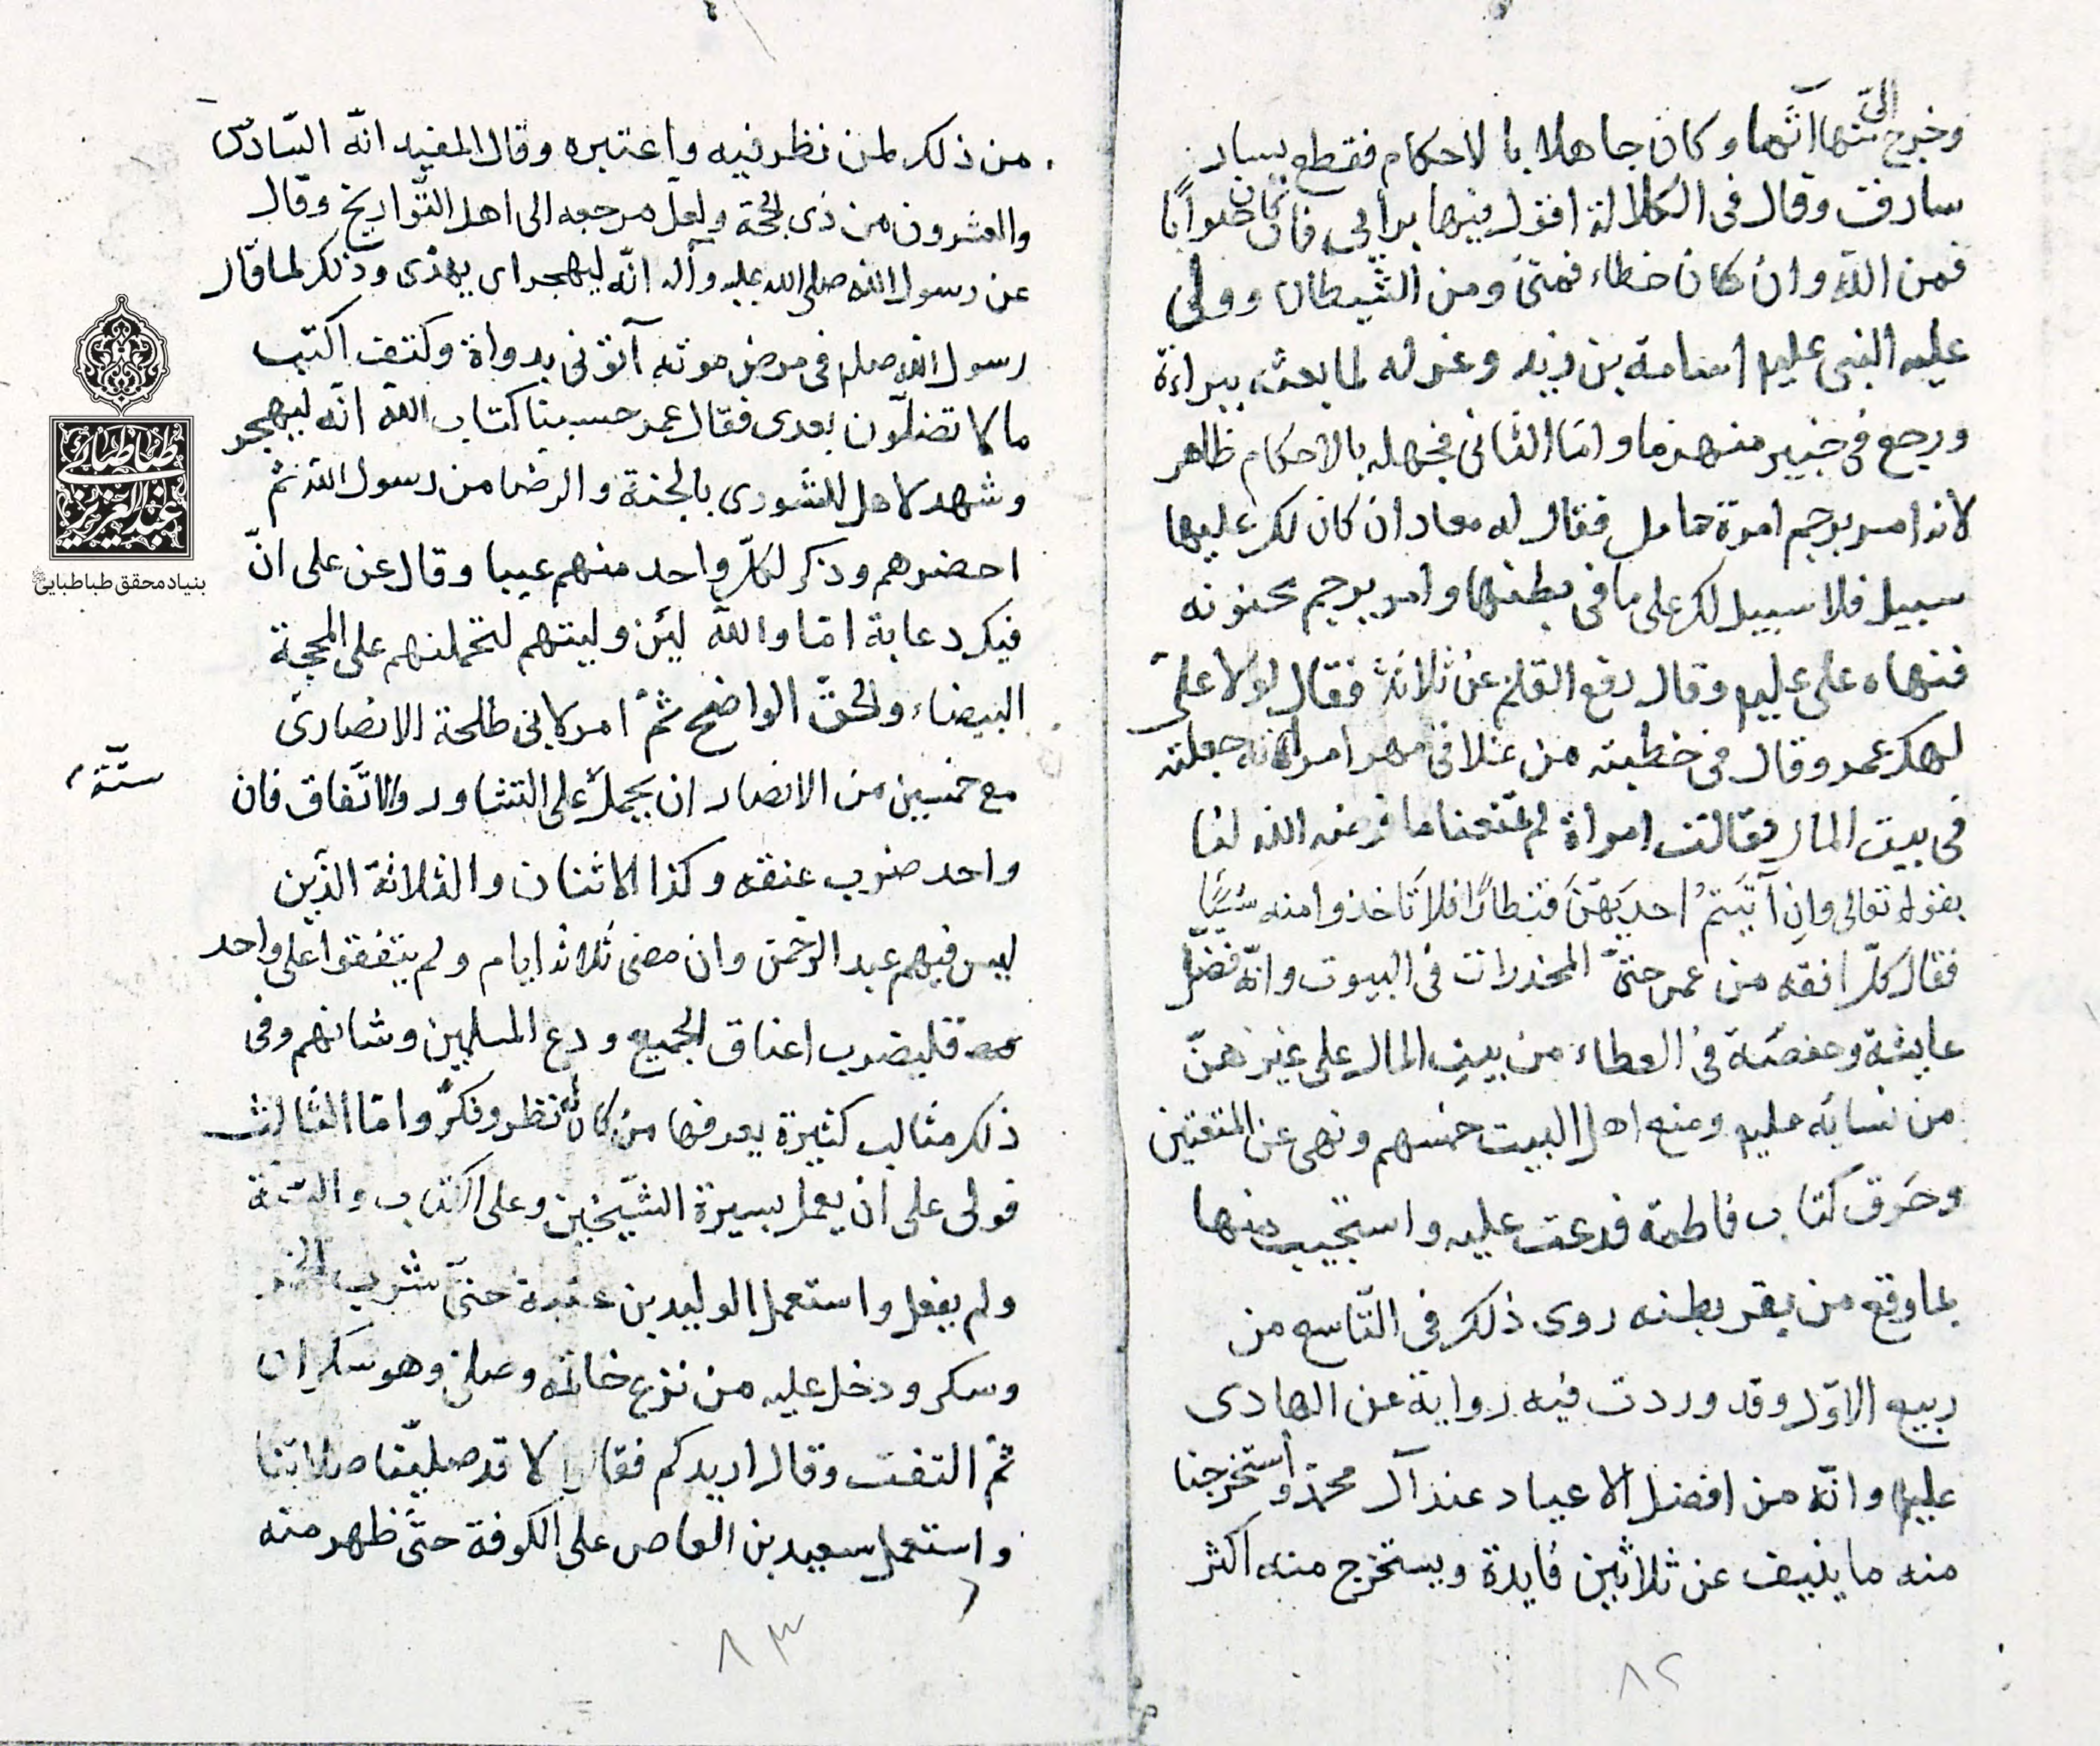 وخرج الىّ منها آثما وكان جاهلا بالاحكام فقطع يسار
سارق وقال فى الكلالة اقول فيها برايى فان كان صوابا
فمن اللّه وان كان خطاء فمنى ومن الشّيطان وولى
عليه النبى عليهم اسامة بن زيد وعزله لما بعثه ببراءة
ورجع فى خيبر منهزما وامّا الثانى فجهله بالاحكام ظاهر
لانه امر برجم امرة حامل فقال له معاد ان كان لك عليها
سبيل فلا سبيل لك على ما فى بطنها وامر برجم مجنونه
فنهاه على عليهم وقال رفع القلم عن ثلاثة فقال لولا علىّ
لهلك عمر وقال فى خطبته من غلا فى مهر امراته جعلته
فى بيت المال فقالت امراة لم تمنعنا ما فرضه اللّه لنا
بقوله تعالى وان آتيتم احديهنّ قنطارًا فلا تاخذوا منه شيئًا
فقال كلّ افقه من عمر حتىّ المخدرات فى البيوت وانّه فضّل
عايشة وحفصة فى العطاء من بيت المال على غيرهنّ
من نسائه عليهم ومنع اهل البيت خمسهم ونهى عن المتعتين
وخرق كتاب فاطمة فدعت عليه واستجيب منها
بما وقع من بقر بطنه روى ذلك فى التّاسع من
ربيع الاوّل وقد وردت فيه رواية عن الهادى
عليهم وانّه من افضل الاعياد عند آل محمّد واستخرجنا
منه ما ينيف عن ثلاثين فايدة ويستخرج منه اكثر
٨٢
من ذلك لمن نظر فيه واعتبره وقال المفيد انّه السّادس
والعشرون من ذى الحجة ولعلّ مرجعه الى اهل التّواريخ وقال
عن رسول اللّه صلى الله عليه وآله انّه ليهجر اى يهذى وذلك لما قال
رسول اللّه صلعم فى مرض موته آتونى بدواة وكتف اكتب
ما لا تضلّون بعدى فقال عمر حسبنا كتاب اللّه انّه ليهجر
وشهد لاهل الشورى بالجنة والرضا من رسول اللّه ثم
احضرهم وذكر لكلّ واحد منهم عيبا وقال عن على انّ
فيك دعابة امّا واللّه لئن وليتهم لتحملنهم على المحجة
البيضاء والحقّ الواضح ثمّ امر لابى طلحة الانصارى
مع خمسين من الانصار ان يحمل على التشاور والاتّفاق فان
ستّة
واحد ضرب عنقه وكذا الاثنان والثلاثة الذين
ليس فيهم عبد الرحمن وان مضى ثلاثة ايام ولم يتفقوا على واحد
فليضرب اعناق الجميع ودع المسلمين وشانهم وفى
ذلك مثالب كثيرة يعرفها من كان له نظر وفكر وامّا الثالث
فولى على ان يعمل بسيرة الشّيخين وعلى الكتاب والسّنة
ولم يفعل واستعمل الوليد بن عقبة حتىّ شرب الخمر
وسكر ودخل عليه من نزع خاتمه وصلى وهو سكران
ثمّ التفت وقال ازيدكم فقال لا قد صليّنا صلاتنا
واستعمل سعيد بن العاص على الكوفة حتىّ ظهر منه
٨٣
طباطبایی
عبدالعزیز
بنیاد محقق طباطبایی